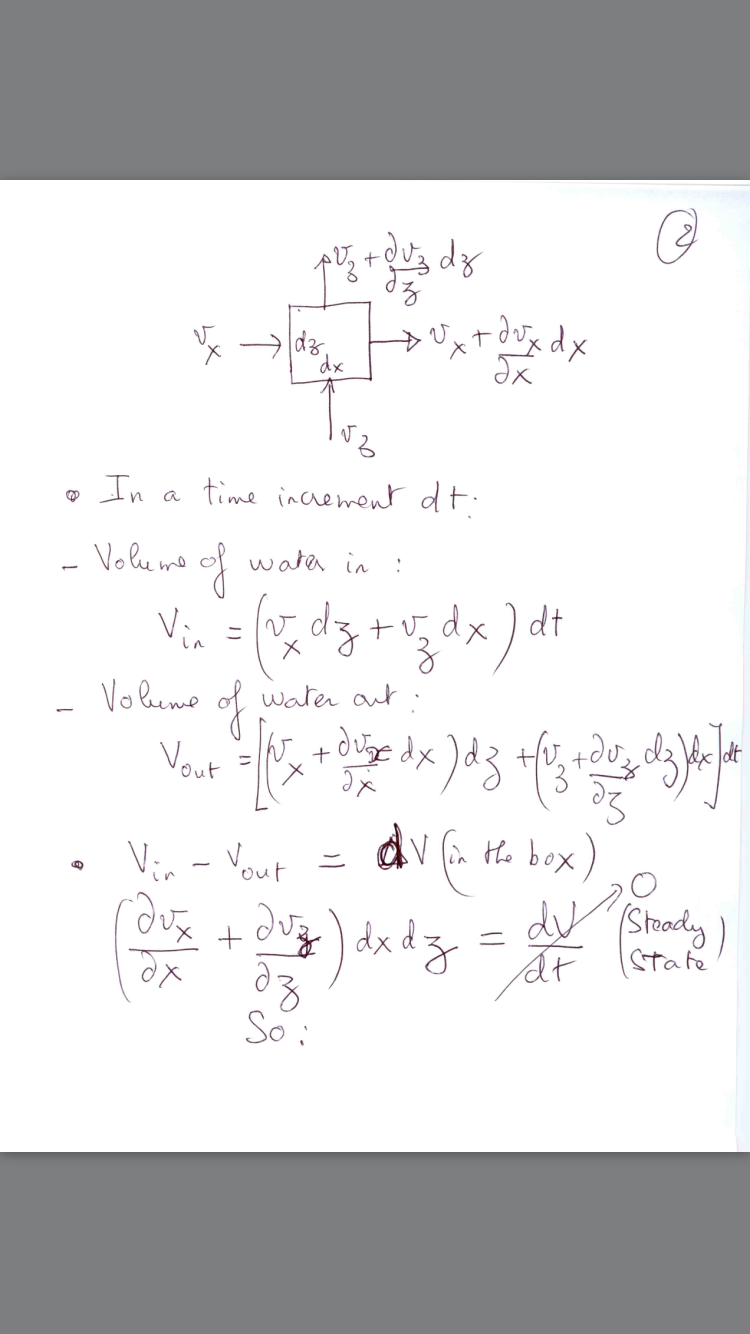 2
v_z + ∂v_z/∂z dz
v_x → dz dx → v_x + ∂v_x/∂x dx
v_z
• In a time increment dt:
- Volume of water in :
V_in = (v_x dz + v_z dx) dt
- Volume of water out :
V_out = [(v_x + ∂v_x/∂x dx) dz + (v_z + ∂v_z/∂z dz) dx] dt
• V_in - V_out = dV (in the box)
(∂v_x/∂x + ∂v_z/∂z) dx dz = dV/dt → 0 (Steady State)
So :